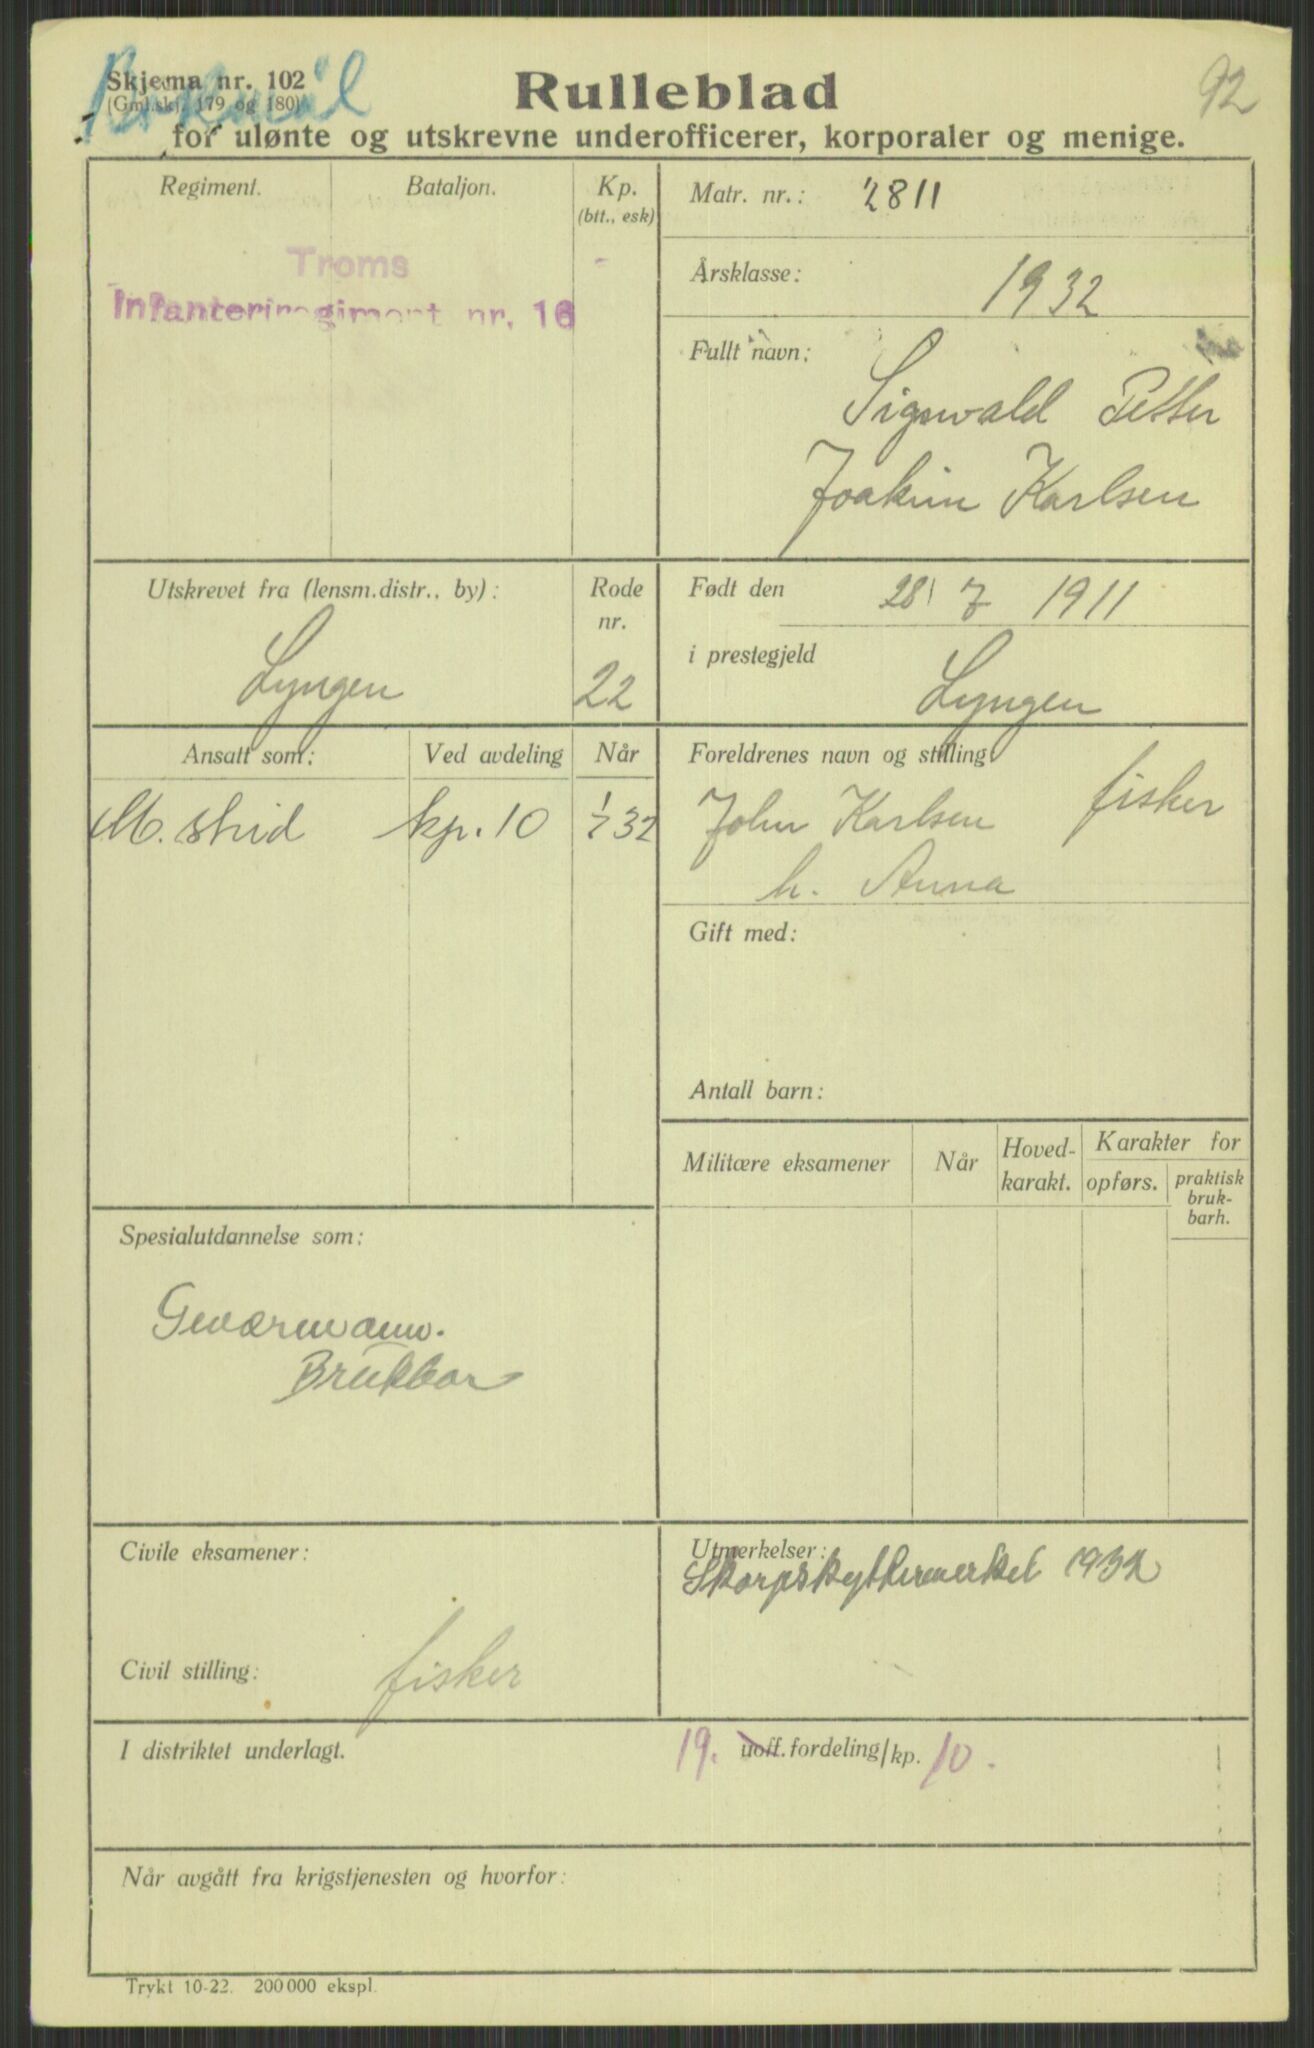 Bokmål
92
Skjema nr. 102
(Gml.skj. 179 og 180)
Rulleblad
for ulønte og utskrevne underofficerer, korporaler og menige.
Regiment.
Bataljon.
Kp.
(btt., esk)
Troms
Infanteriregiment nr. 16
Matr. nr.: 2811
Årsklasse: 1932
Fullt navn:
Sigwald Petter
Joakim Karlsen
Utskrevet fra (lensm.distr., by):
Lyngen
Rode
nr.
22
Født den 28/7 1911
i prestegjeld
Lyngen
Ansatt som:
Ved avdeling
Når
M. strid kp. 10 1/7 32
Foreldrenes navn og stilling
John Karlsen fisker
h. Anna
Gift med:
Antall barn:
Militære eksamener
Når
Hoved-
karakt.
Karakter for
opførs.
praktisk
bruk-
barh.
Spesialutdannelse som:
Geværmann.
Brukbar
Civile eksamener:
Civil stilling: fisker
Utmerkelser:
Skarpskyttermerket 1932
I distriktet underlagt.
19. uoff. fordeling/kp. 10.
Når avgått fra krigstjenesten og hvorfor:
Trykt 10-22. 200 000 ekspl.